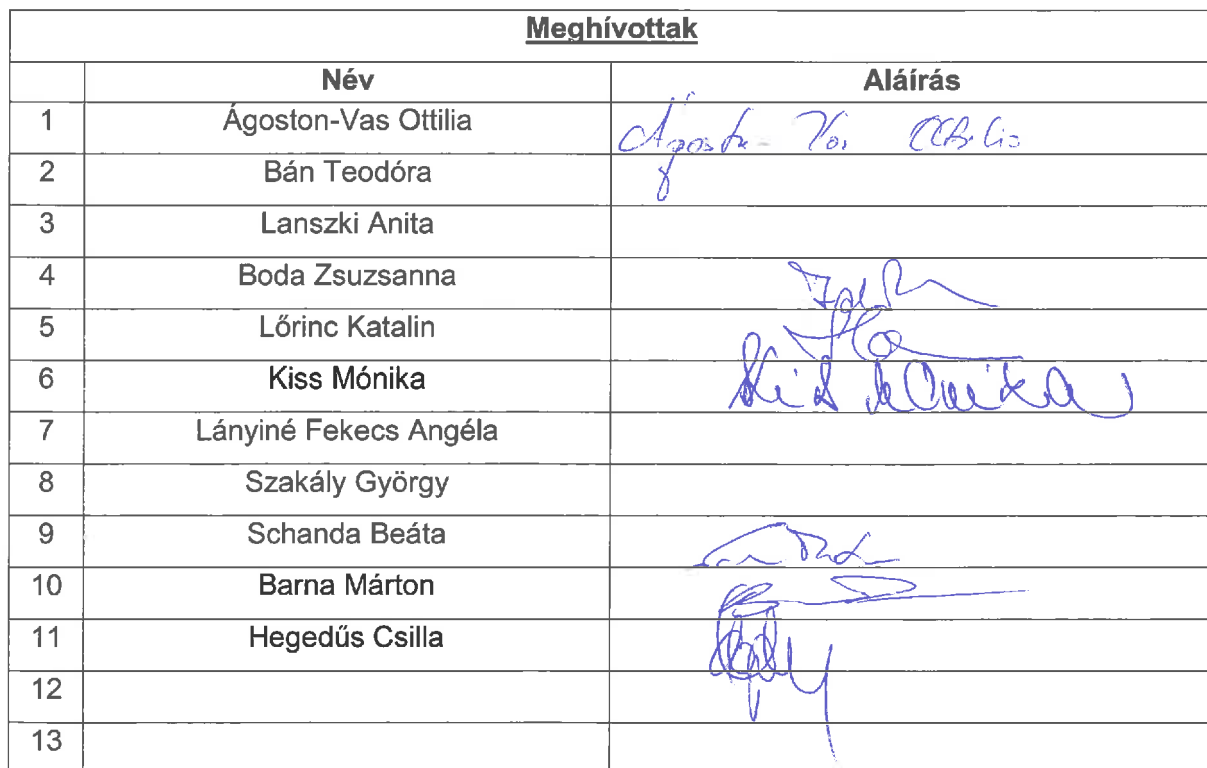 Meghívottak
Név Aláírás
1 Ágoston-Vas Ottilia Ágoston-Vas Ottilia
2 Bán Teodóra
3 Lanszki Anita
4 Boda Zsuzsanna
5 Lőrinc Katalin
6 Kiss Mónika Kiss Mónika
7 Lányiné Fekecs Angéla
8 Szakály György
9 Schanda Beáta
10 Barna Márton
11 Hegedűs Csilla
12
13